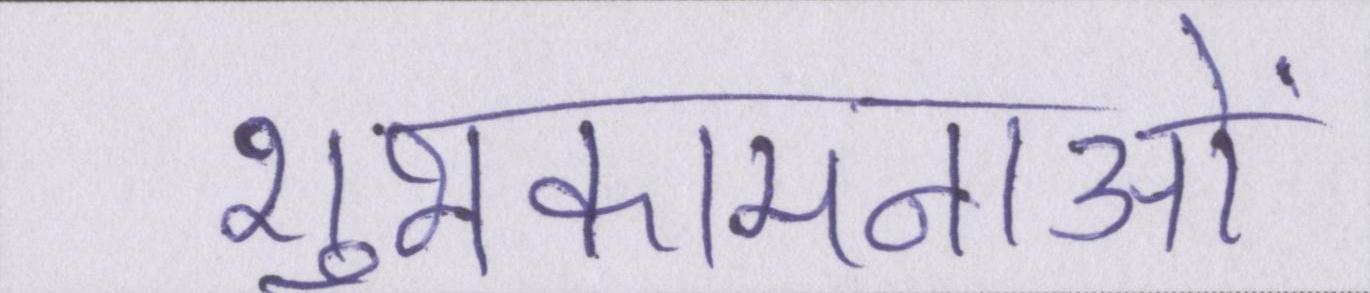 शुभकामनाओं